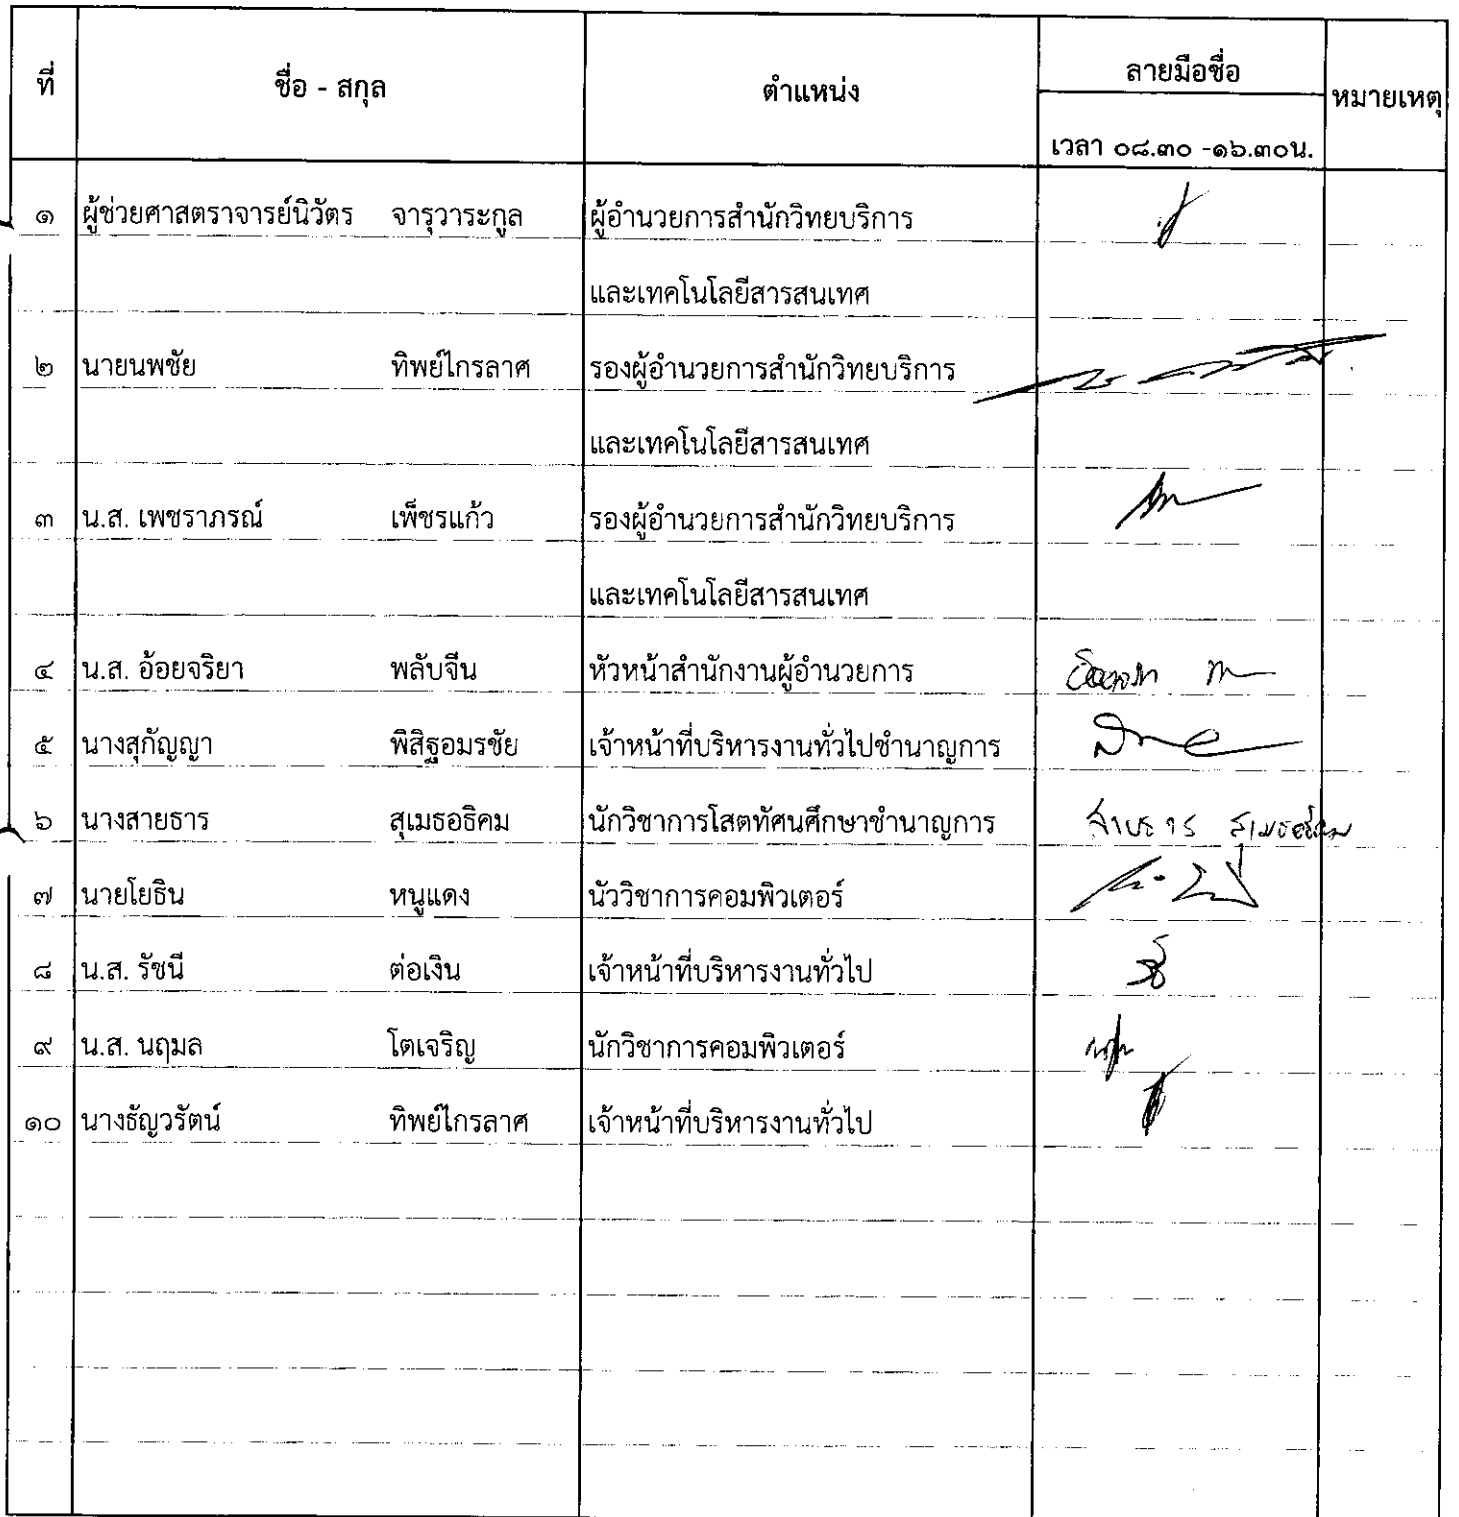 ที่ ชื่อ - สกุล ตำแหน่ง ลายมือชื่อ หมายเหตุ
เวลา ๐๘.๓๐ -๑๖.๓๐น.
๑ ผู้ช่วยศาสตราจารย์นิวัตร จารุวาระกูล ผู้อำนวยการสำนักวิทยบริการ
และเทคโนโลยีสารสนเทศ
๒ นายนพชัย ทิพย์ไกรลาศ รองผู้อำนวยการสำนักวิทยบริการ
และเทคโนโลยีสารสนเทศ
๓ น.ส. เพชราภรณ์ เพ็ชรแก้ว รองผู้อำนวยการสำนักวิทยบริการ
และเทคโนโลยีสารสนเทศ
๔ น.ส. อ้อยจริยา พลับจีน หัวหน้าสำนักงานผู้อำนวยการ
๕ นางสุกัญญา พิสิฐอมรชัย เจ้าหน้าที่บริหารงานทั่วไปชำนาญการ
๖ นางสายธาร สุเมธอธิคม นักวิชาการโสตทัศนศึกษาชำนาญการ สายธาร สุเมธอธิคม
๗ นายโยธิน หนูแดง นัววิชาการคอมพิวเตอร์
๘ น.ส. รัชนี ต่อเงิน เจ้าหน้าที่บริหารงานทั่วไป
๙ น.ส. นฤมล โตเจริญ นักวิชาการคอมพิวเตอร์
๑๐ นางธัญวรัตน์ ทิพย์ไกรลาศ เจ้าหน้าที่บริหารงานทั่วไป